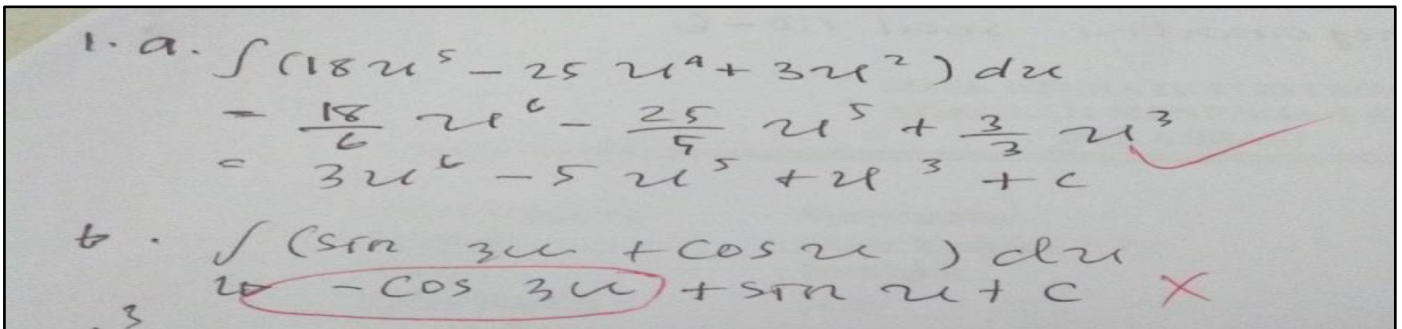 1. a. ∫(18x⁵ − 25x⁴ + 3x²) dx
= 18/6 x⁶ − 25/5 x⁵ + 3/3 x³
= 3x⁶ − 5x⁵ + x³ + c
b. ∫(sin 3x + cos x) dx
− cos 3x + sin x + c
3